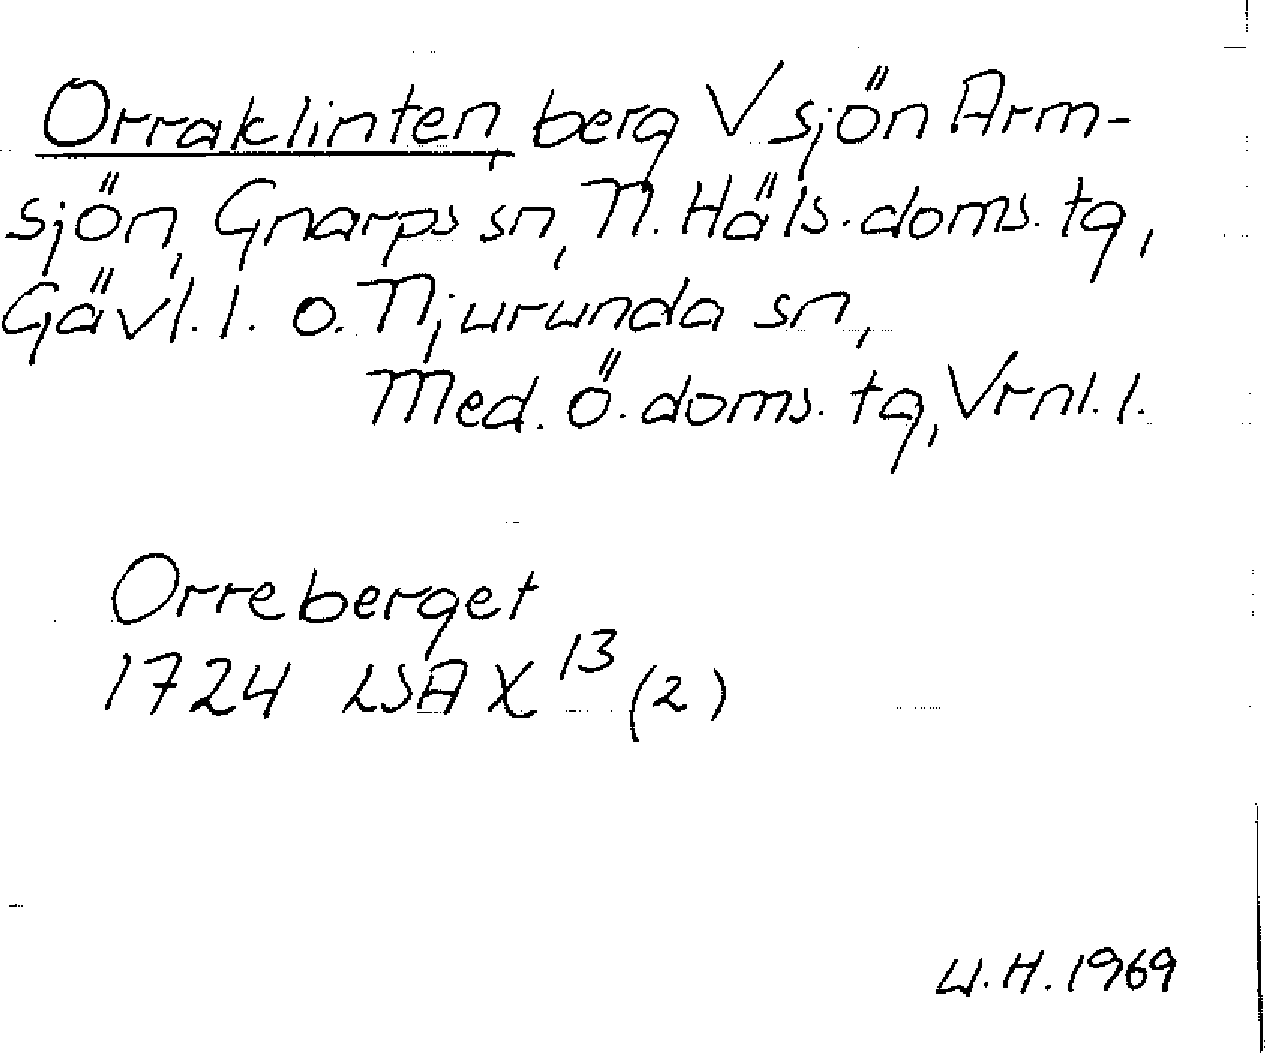 Orraklinten, berg V sjön Arm-
sjön, Gnarps sn, N. Häls. doms. tg,
Gävl. l. o. Njurunda sn,
Med. ö. doms. tg, Vrnl. l.
Orreberget
1724 LSA X 13 (2)
U.H. 1969